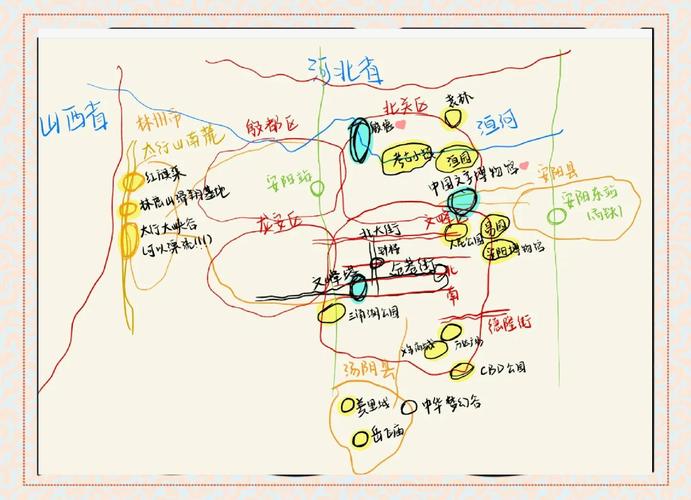 河北省
山西省
林州市
太行山南麓
红旗渠
林虑山滑翔基地
太行大峡谷
(可以漂流!!!)
殷都区
北关区
袁林
洹河
殷墟
考古小镇
洹园
中国文字博物馆
安阳县
安阳站
安阳东站
(高铁)
龙安区
文峰区
北大街
钟楼
人民公园
易园
安阳博物馆
文峰塔
仓巷街
北
南
三角湖公园
德隆街
万达广场
CBD公园
汤阴县
羑里城
中华梦幻谷
岳飞庙